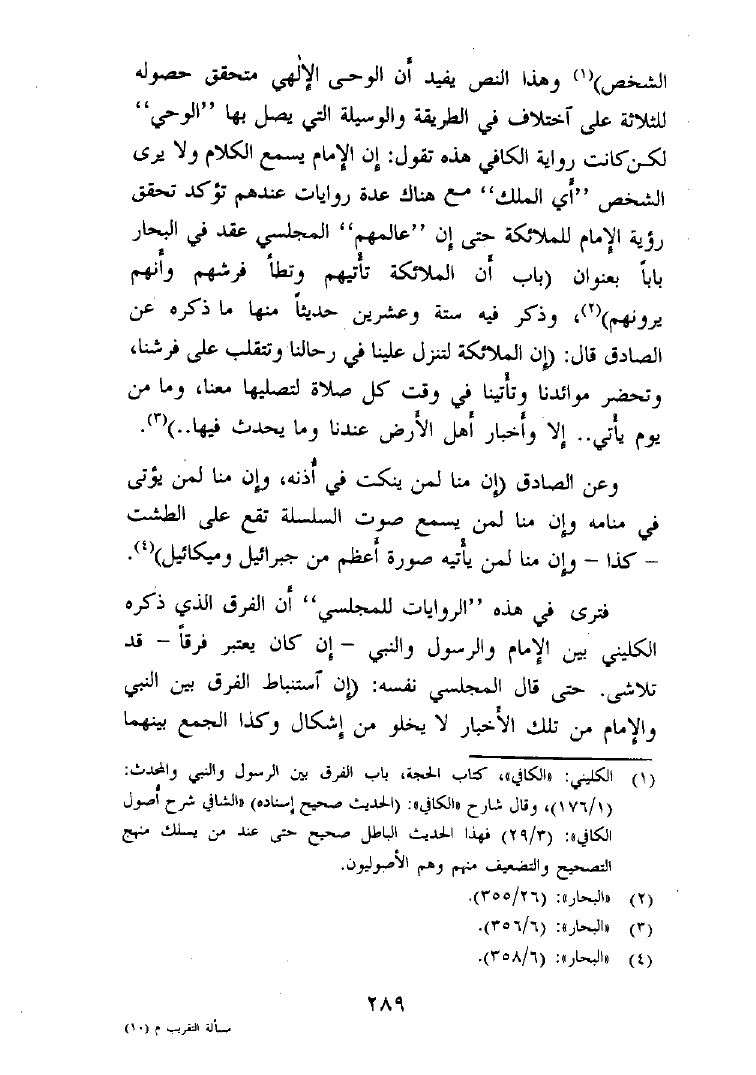 الشخص)(١) وهذا النص يفيد أن الوحي الإلهي متحقق حصوله
للثلاثة على آختلاف في الطريقة والوسيلة التي يصل بها ”الوحي“
لكن كانت رواية الكافي هذه تقول: إن الإمام يسمع الكلام ولا يرى
الشخص ”أي الملك“ مع هناك عدة روايات عندهم تؤكد تحقق
رؤية الإمام للملائكة حتى إن ”عالمهم“ المجلسي عقد في البحار
باباً بعنوان (باب أن الملائكة تأتيهم وتطأ فرشهم وأنهم
يرونهم)(٢)، وذكر فيه ستة وعشرين حديثاً منها ما ذكره عن
الصادق قال: (إن الملائكة لتنزل علينا في رحالنا وتتقلب على فرشنا،
وتحضر موائدنا وتأتينا في وقت كل صلاة لتصليها معنا، وما من
يوم يأتي.. إلا وأخبار أهل الأرض عندنا وما يحدث فيها..)(٣).
وعن الصادق (إن منا لمن ينكت في أذنه، وإن منا لمن يؤتى
في منامه وإن منا لمن يسمع صوت السلسلة تقع على الطشت
– كذا – وإن منا لمن يأتيه صورة أعظم من جبرائيل وميكائيل)(٤).
فترى في هذه ”الروايات للمجلسي“ أن الفرق الذي ذكره
الكليني بين الإمام والرسول والنبي – إن كان يعتبر فرقاً – قد
تلاشى. حتى قال المجلسي نفسه: (إن آستنباط الفرق بين النبي
والإمام من تلك الأخبار لا يخلو من إشكال وكذا الجمع بينهما
(١) الكليني: «الكافي»، كتاب الحجة، باب الفرق بين الرسول والنبي والمحدث:
(١٧٦/١)، وقال شارح «الكافي»: (الحديث صحيح إسناده) «الشافي شرح أصول
الكافي»: (٢٩/٣) فهذا الحديث الباطل صحيح حتى عند من يسلك منهج
التصحيح والتضعيف منهم وهم الأصوليون.
(٢) «البحار»: (٣٥٥/٢٦).
(٣) «البحار»: (٣٥٦/٦).
(٤) «البحار»: (٣٥٨/٦).
٢٨٩
مسألة التقريب م (١٠)